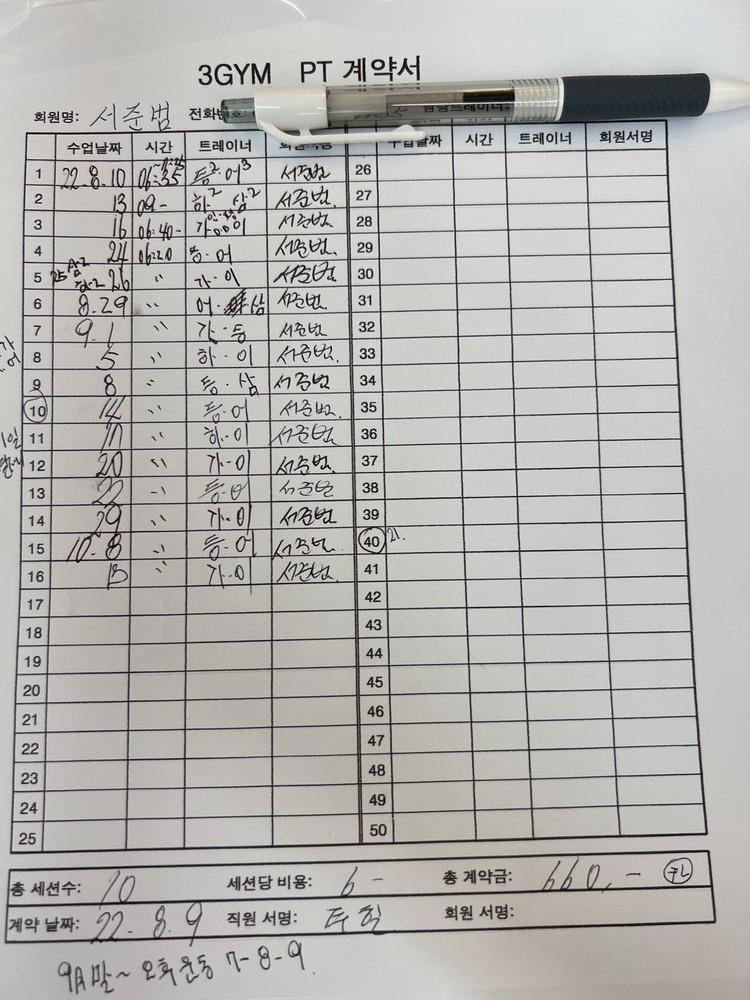 3GYM PT 계약서
회원명: 서준범 전화번호:
수업날짜 시간 트레이너 수업날짜 시간 트레이너 회원서명
1 22.8.10 06:35 등2.어3 서준범 26
2 13 09- 하.2 삼.2 서준범. 27
3 16 06:40- 서준범. 28
4 24 06:20 등.어 서준범. 29
5 26 〃 가.이 서준범. 30
6 8.29 〃 어. 삼 서준범. 31
7 9.1 〃 가.등 서준범. 32
8 5 〃 하.이 서준범. 33
9 8 〃 등.삼 서준범. 34
10 14 〃 등.어 서준범. 35
11 〃 하.이 서준범. 36
12 20 〃 가.이 서준범. 37
13 22 〃 등.어 서준범 38
14 29 〃 가.이 서준범 39
15 10.8 〃 등.어 서준범. 40 21.
16 13 〃 가.이 서준범. 41
17 42
18 43
19 44
20 45
21 46
22 47
23 48
24 49
25 50
총 세션수: 10 세션당 비용: 6- 총 계약금: 660,-
계약 날짜: 22.8.9 직원 서명: 회원 서명:
9月말~ 오후운동 7-8-9.